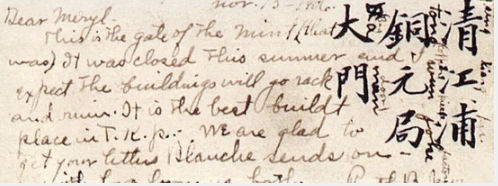 Nov. 13-
Dear Meryl.
This is the gate of the Mint (that
was) It was closed this summer and I
expect the buildings will go rack
and ruin. It is the best buildt
place in T. K. p.. We are glad to
get your letters Blanche sends on
清江浦
銅元局
大門